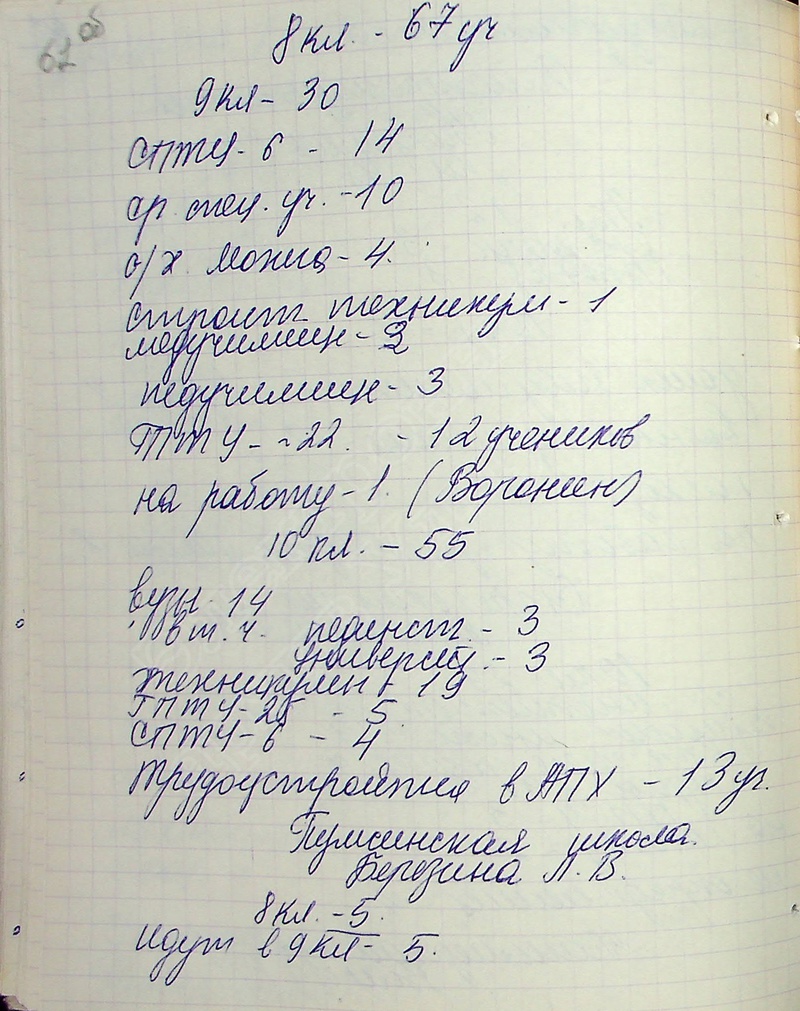 61 об
8 кл. - 67 уч
9 кл - 30
СПТУ - 6 - 14
ср. спец. уч. - 10
с/х Можга - 4.
строит техникум - 1
медучилищ - 2
педучилищ - 3
ГПТУ - 22. - 12 учеников
на работу - 1. (Воронин)
10 кл. - 55
вузы - 14
в т. ч. пединст. - 3
университ. - 3
техникумы - 19
ГПТУ - 25 - 5.
СПТУ - 6 - 4
трудоустройства в АПХ - 13 уч.
Пумсинская школа.
Березина Л. В.
8 кл. - 5.
идут в 9 кл - 5.